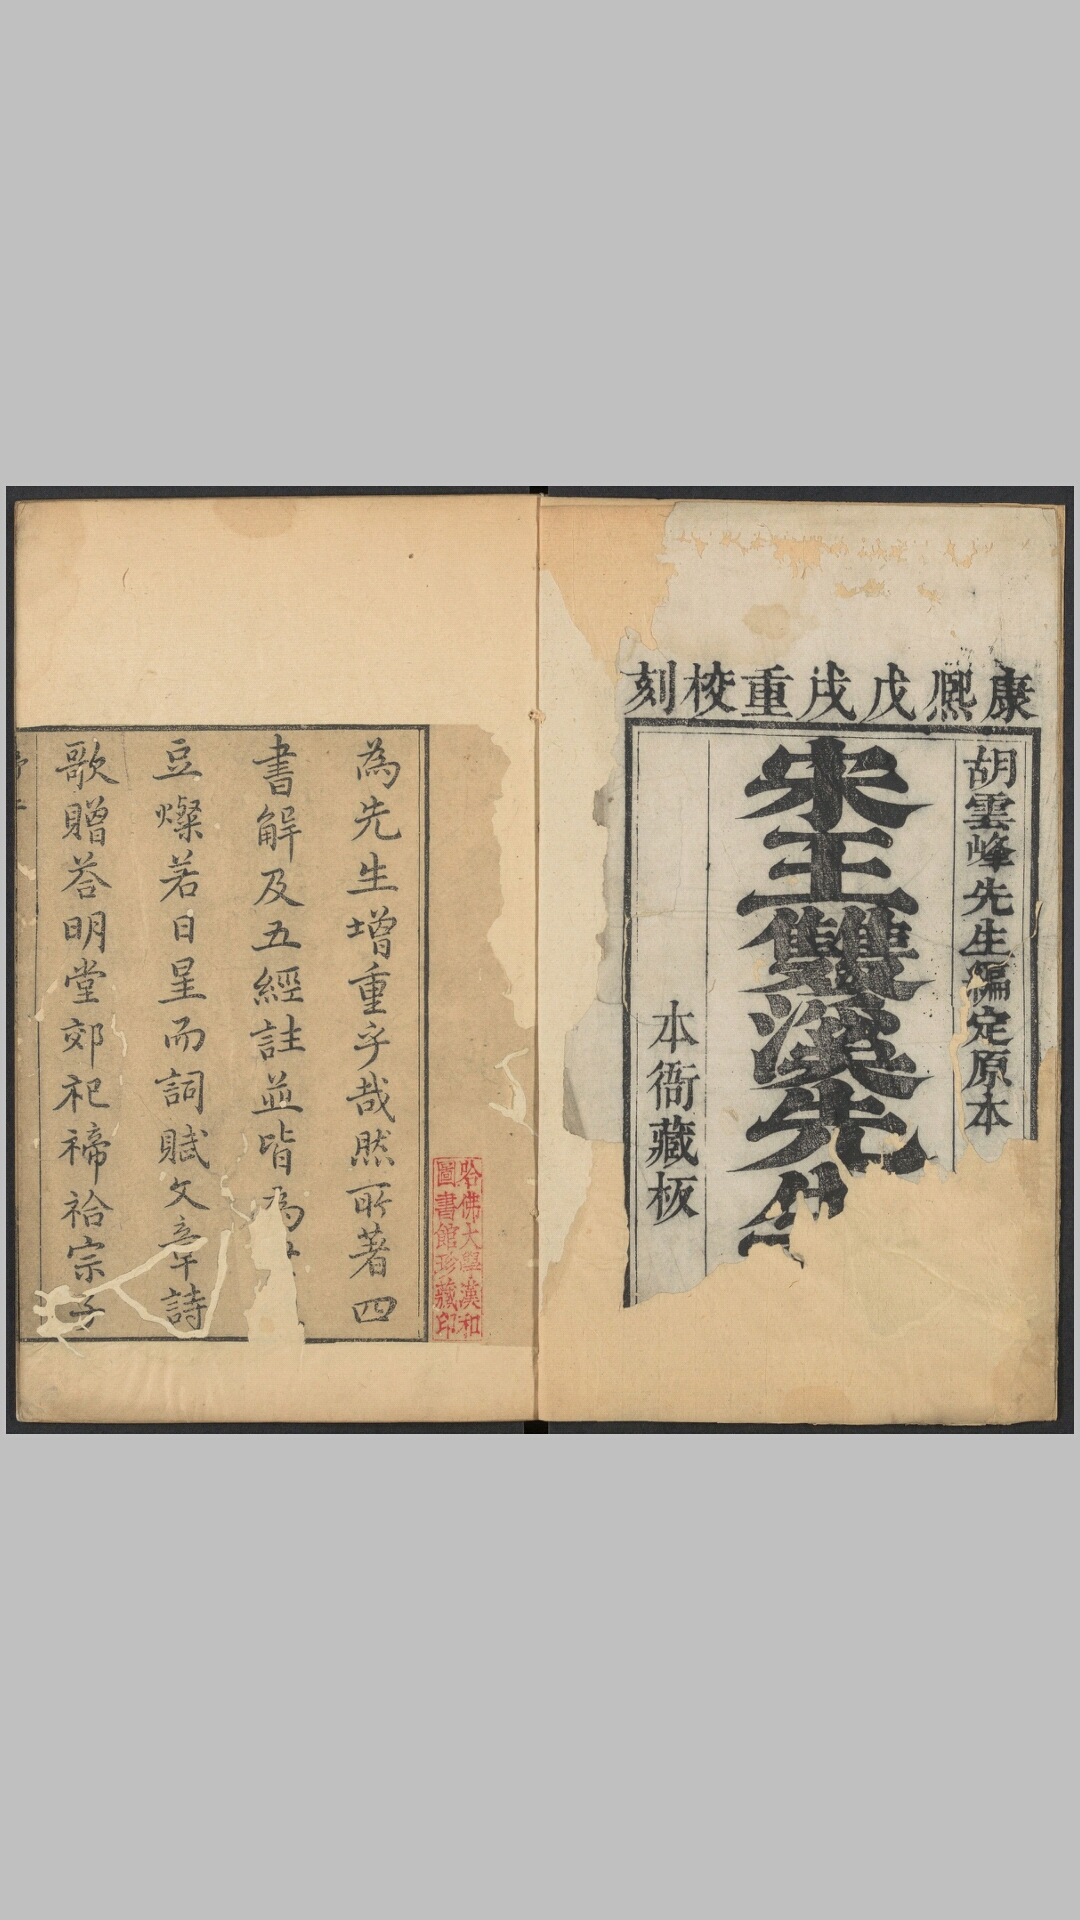 康熈戊戌重校刻
胡雲峰先生編定原本
宋王雙溪先生
本衙藏板
哈佛大學漢和
圖書館珍藏印
為先生增重乎哉然所著四
書解及五經註並皆為
豆燦若日星而詞賦文章詩
歌贈荅明堂郊祀禘祫宗子